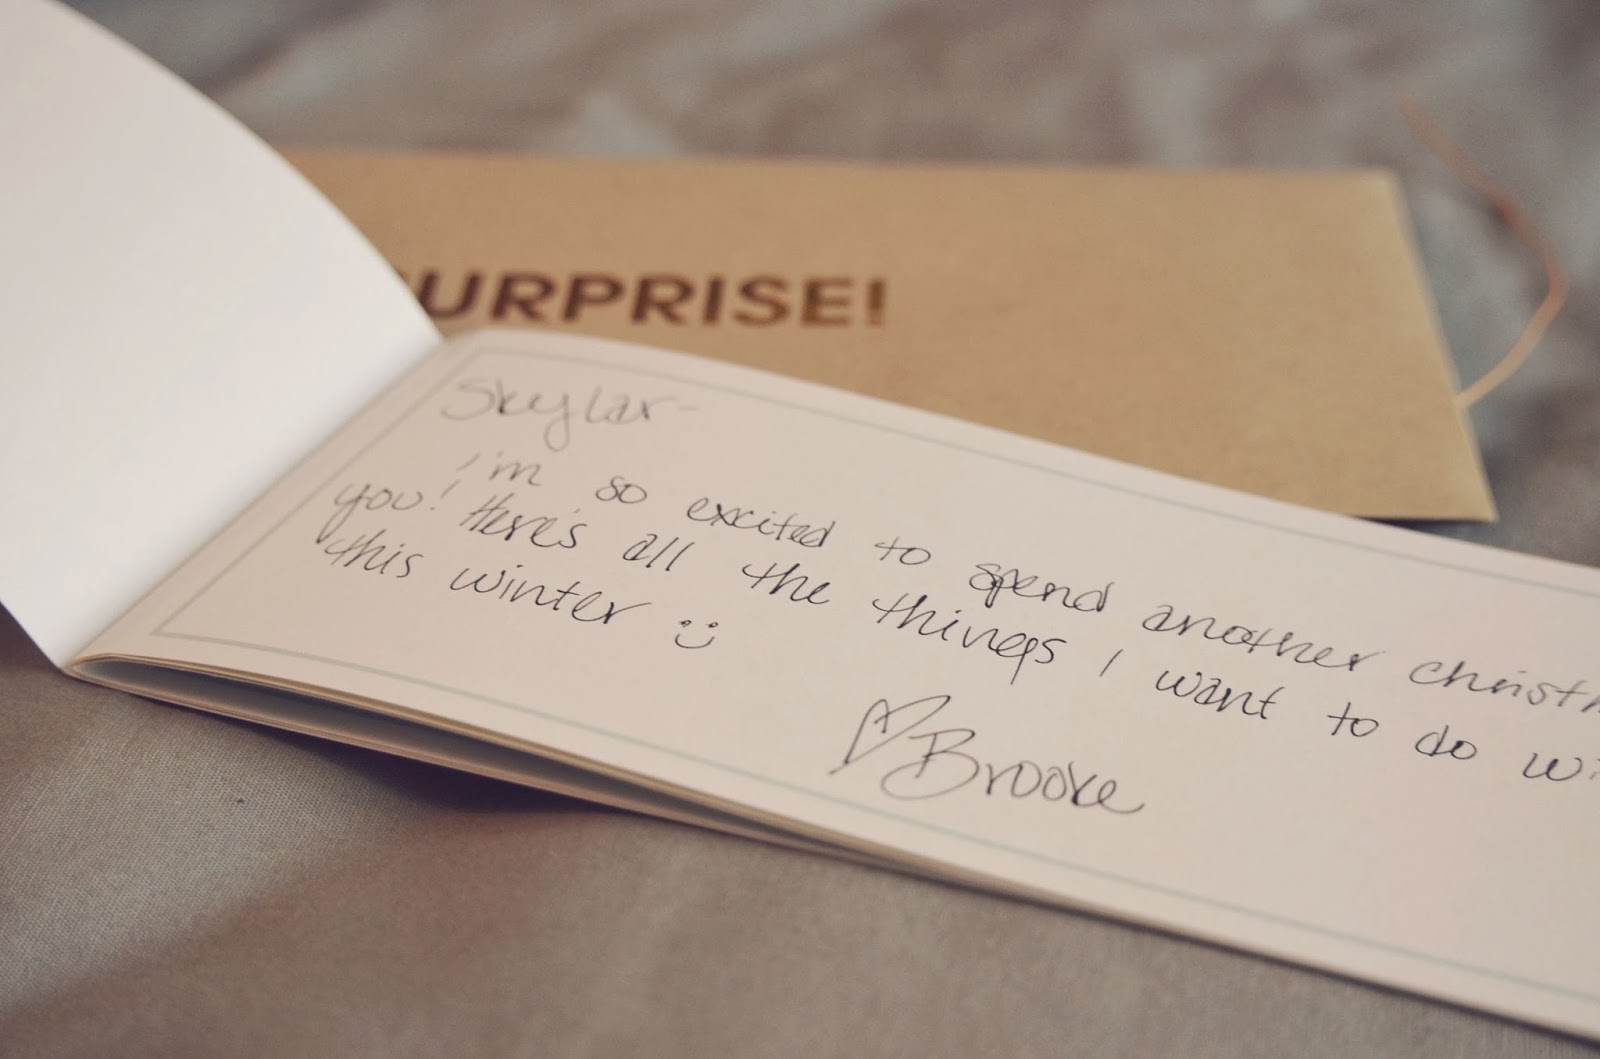 URPRISE!
Skylar-
I'm so excited to spend another christm
you! Here's all the things I want to do wi
this winter :)
♡Brooke